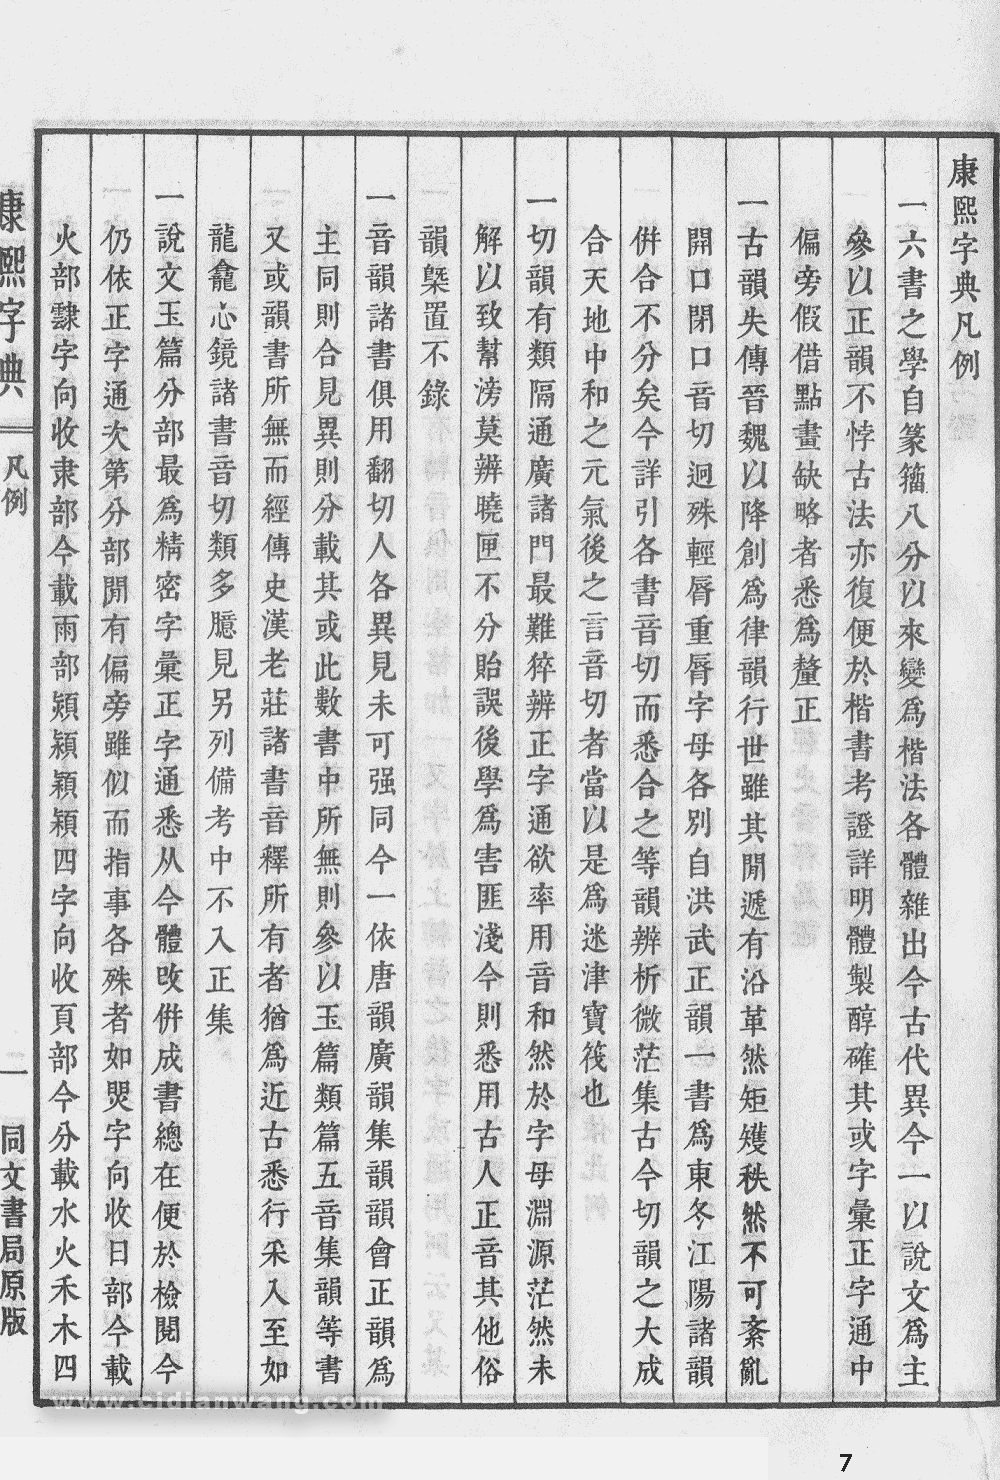 康熙字典凡例
一六書之學自篆籀八分以來變爲楷法各體雜出今古代異今一以說文爲主
參以正韻不悖古法亦復便於楷書考證詳明體製醇確其或字彙正字通中
偏旁假借點畫缺略者悉爲釐正
一古韻失傳晉魏以降創爲律韻行世雖其閒遞有沿革然矩矱秩然不可紊亂
開口閉口音切迥殊輕脣重脣字母各別自洪武正韻一書爲東冬江陽諸韻
倂合不分矣今詳引各書音切而悉合之等韻辨析微茫集古今切韻之大成
合天地中和之元氣後之言音切者當以是爲迷津寶筏也
一切韻有類隔通廣諸門最難猝辨正字通欲率用音和然於字母淵源茫然未
解以致幫滂莫辨曉匣不分貽誤後學爲害匪淺今則悉用古人正音其他俗
韻槩置不錄
一音韻諸書俱用翻切人各異見未可强同今一依唐韻廣韻集韻韻會正韻爲
主同則合見異則分載其或此數書中所無則參以玉篇類篇五音集韻等書
又或韻書所無而經傳史漢老莊諸書音釋所有者猶爲近古悉行采入至如
龍龕心鏡諸書音切類多臆見另列備考中不入正集
一說文玉篇分部最爲精密字彙正字通悉从今體攺倂成書總在便於檢閱今
仍依正字通次第分部閒有偏旁雖似而指事各殊者如煛字向收日部今載
火部䨥字向收隶部今載雨部熲潁穎穎四字向收頁部今分載水火禾木四
康熙字典
凡例
二
同文書局原版
www.cidianwang.com
7